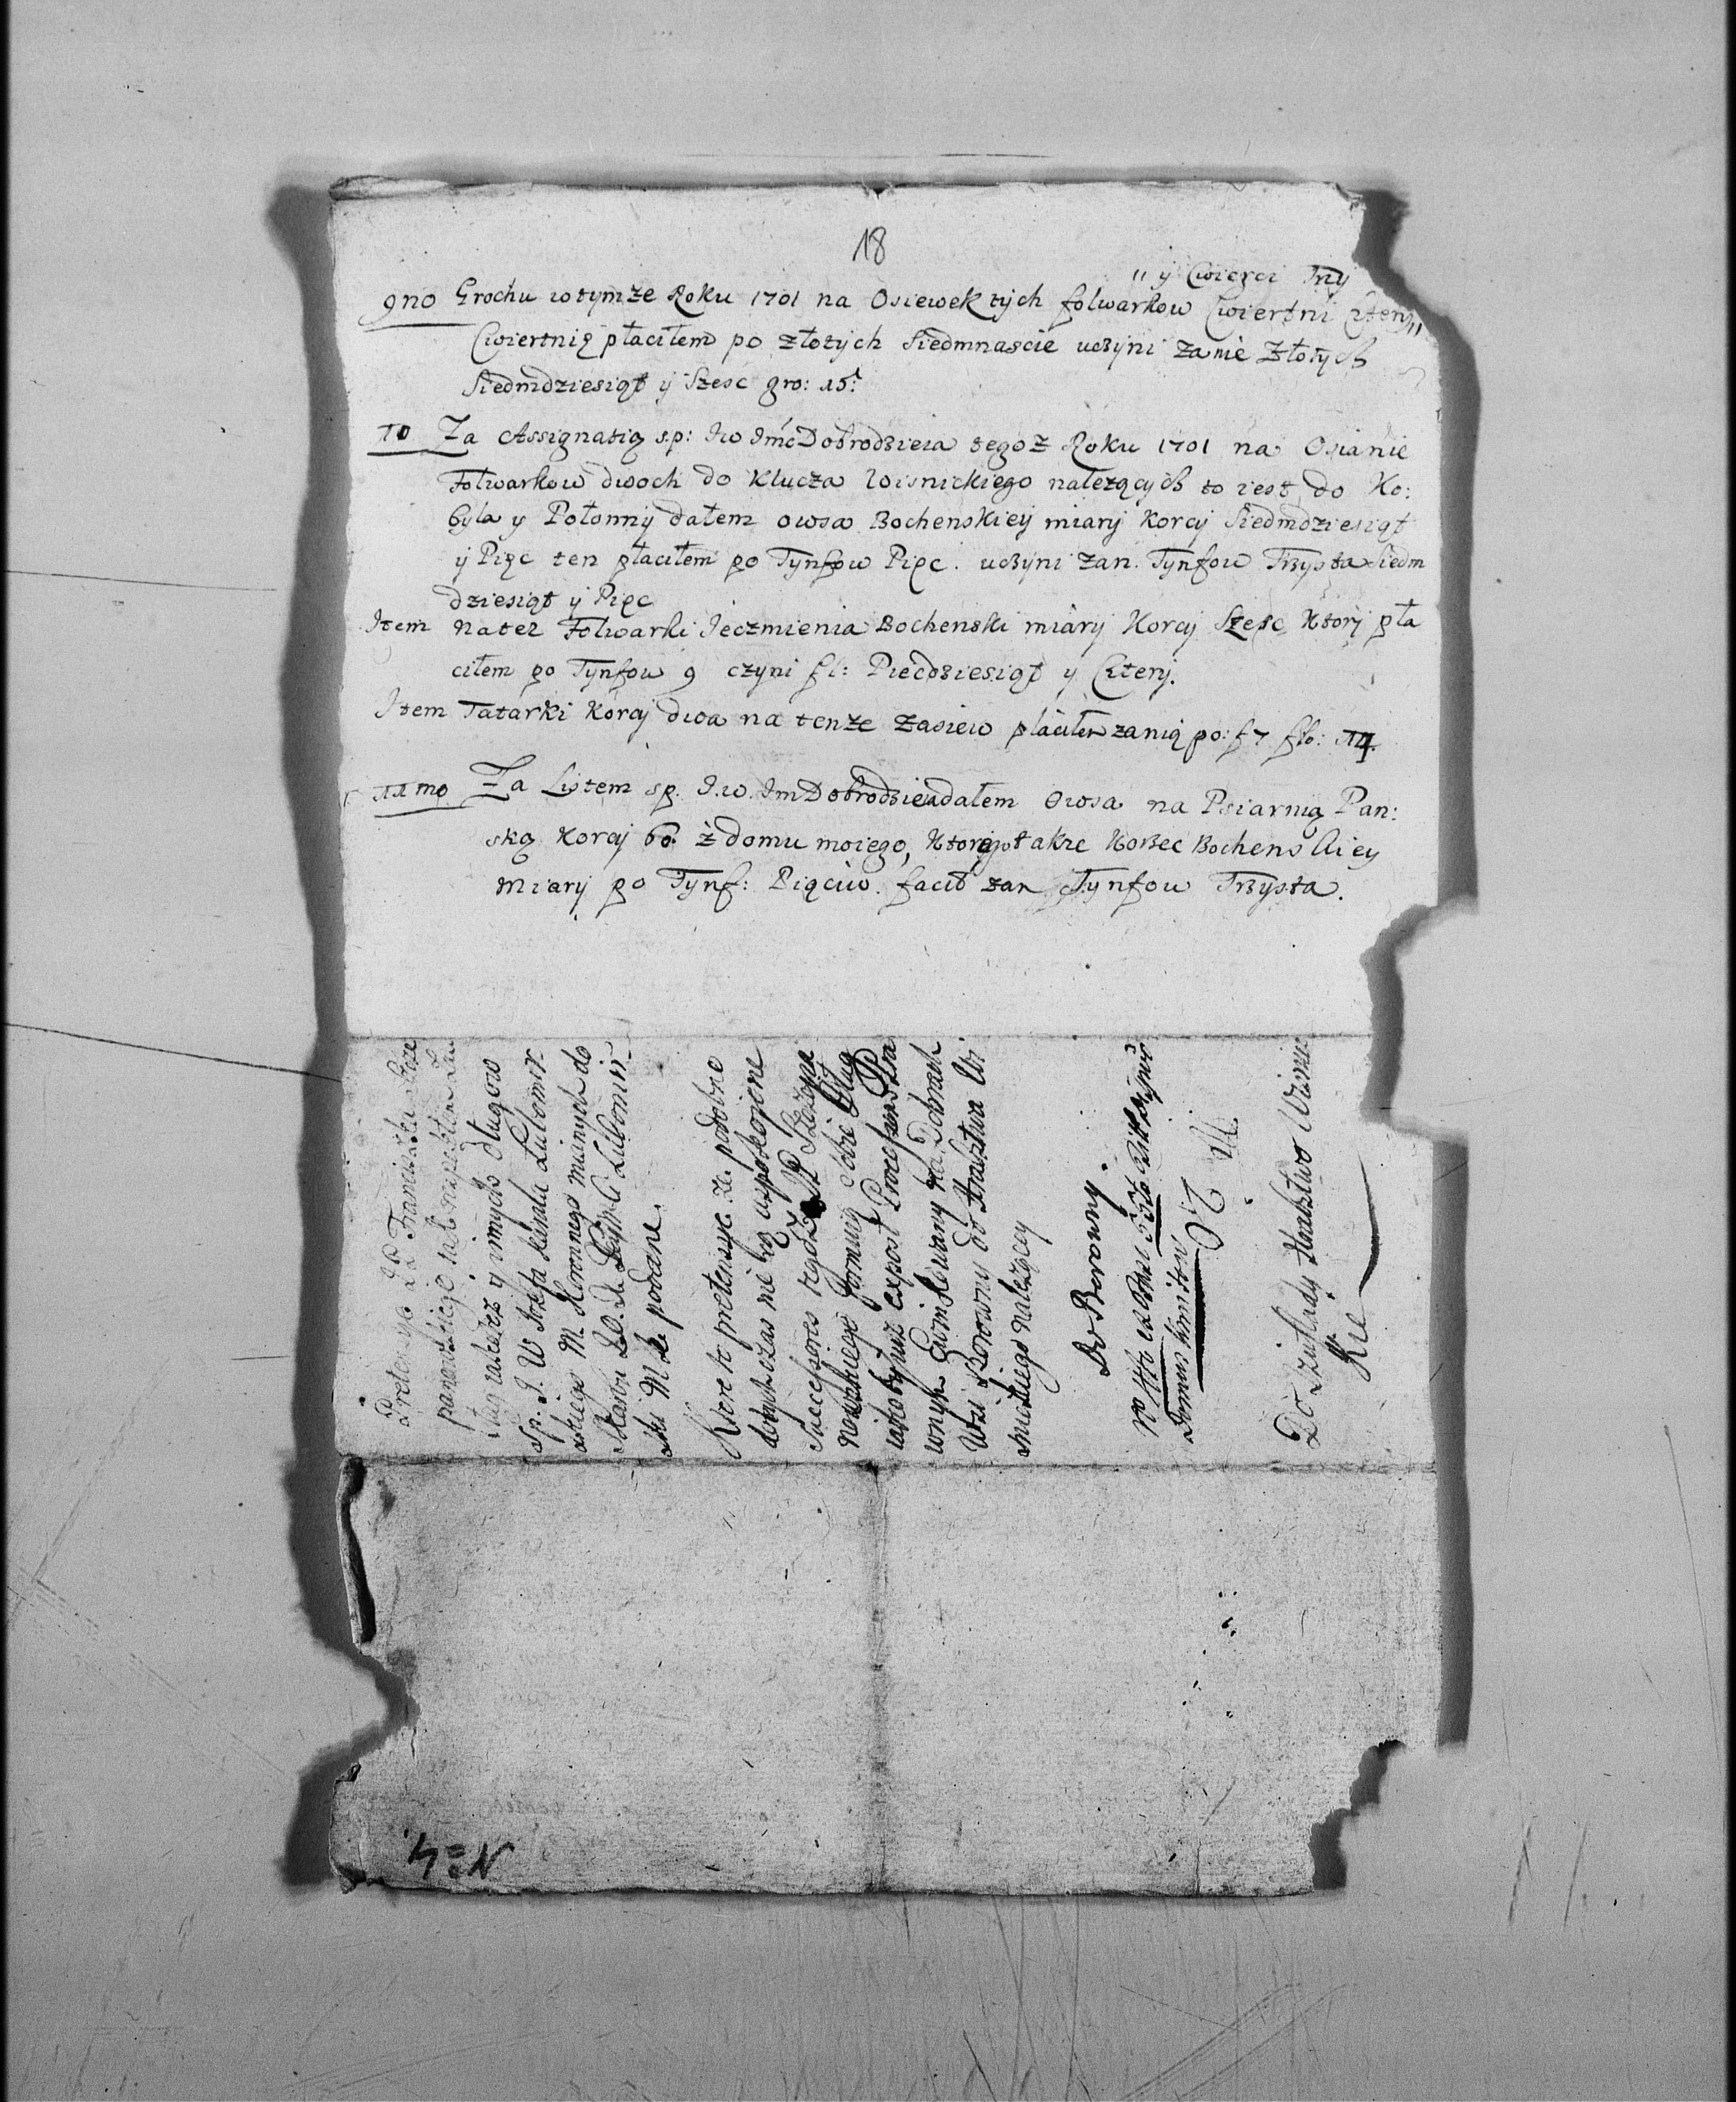 18
" y Cwierci Trzy
9no Grochu w tymze Roku 1701 na Osiewek tych folwarkow Cwiertni Cztery "
Cwiertnią płaciłem po złotych Siedmnascie uczyni zanie Złotych
Siedmdziesiąt y Szesc gro: 15:
10 Za Assignatią s.p: Jw Jmć Dobrodzieia tegoz Roku 1701 na Osianie
Folwarkow dwoch do Klucza Wisnickiego nalezących to iest do Ko:
byla y Połomy dałem owsa Bochenskiey miary Korcy Siedmdziesiąt
y Pięc ten płaciłem po Tynfow Pięc. uczyni zan. Tynfow Trzysta Siedm
dziesiąt y Pięc
Item na tez Folwarki Jeczmienia Bochenski miary Korcy Szesc Ktory pła
ciłem po Tynfow 9 czyni fl: Piecdziesiąt y Cztery.
Item Tatarki Korcy dwa na tenze zasiew płaciłem zanią po: f 7 flo: 14
11mo Za Listem s.p. J.w. Jm Dobrodzieia dałem Owsa na Psiarnią Pan:
ską Korcy 60. z domu moiego, Ktorego takze Korzec Bochenskiey
Miary po Tynf: Pięciu. facit zan Tynfow Trzysta.
Pretensya JP Franciszka
y innych długow
Sp. J. W Józefa Karola Lubomir-
skiego M. Koronnego mianych do
Skarbu Lubomir-
ski M K podane.
Ktore te pretensye ze podobno
dotychczas nie są uspokojone
Successores tegoz JP
formuią sobie Dług
iakoby iuz expost Processem Pra
wnym Ewinkowany na Dobrach
Wsi Borowny do Hrabstwa Wi
snickiego nalezącey
Do Borowny.
Do Działady Hrabstwo Wisnic
Kie
N= 4.